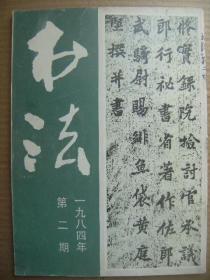 书法
一九八四年
第二期
修實録院檢討官承議
郎行秘書省著作佐郎
武騎尉賜緋魚袋黄庭
堅撰并書